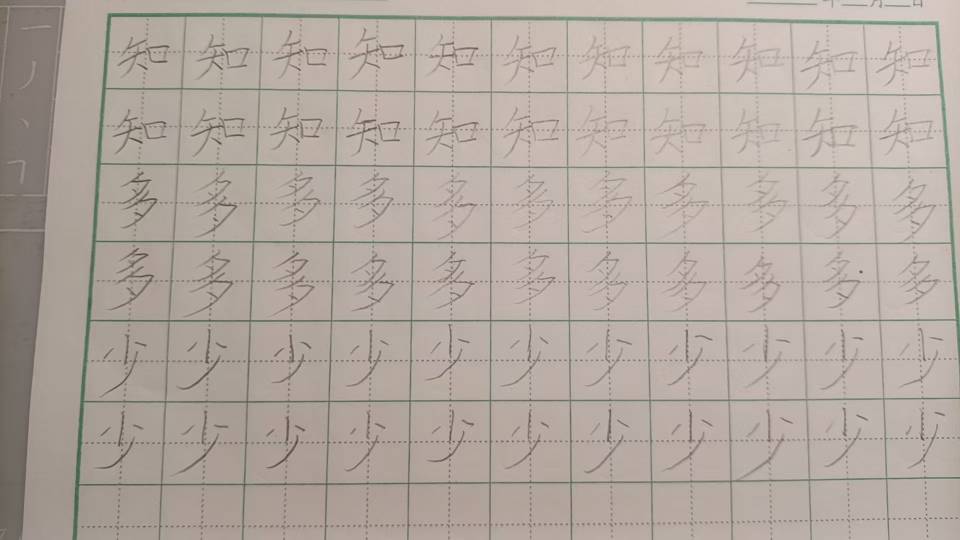 知知知知知知知知知知知
知知知知知知知知知知知
多多多多多多多多多多多
多多多多多多多多多多多
少少少少少少少少少少少
少少少少少少少少少少少